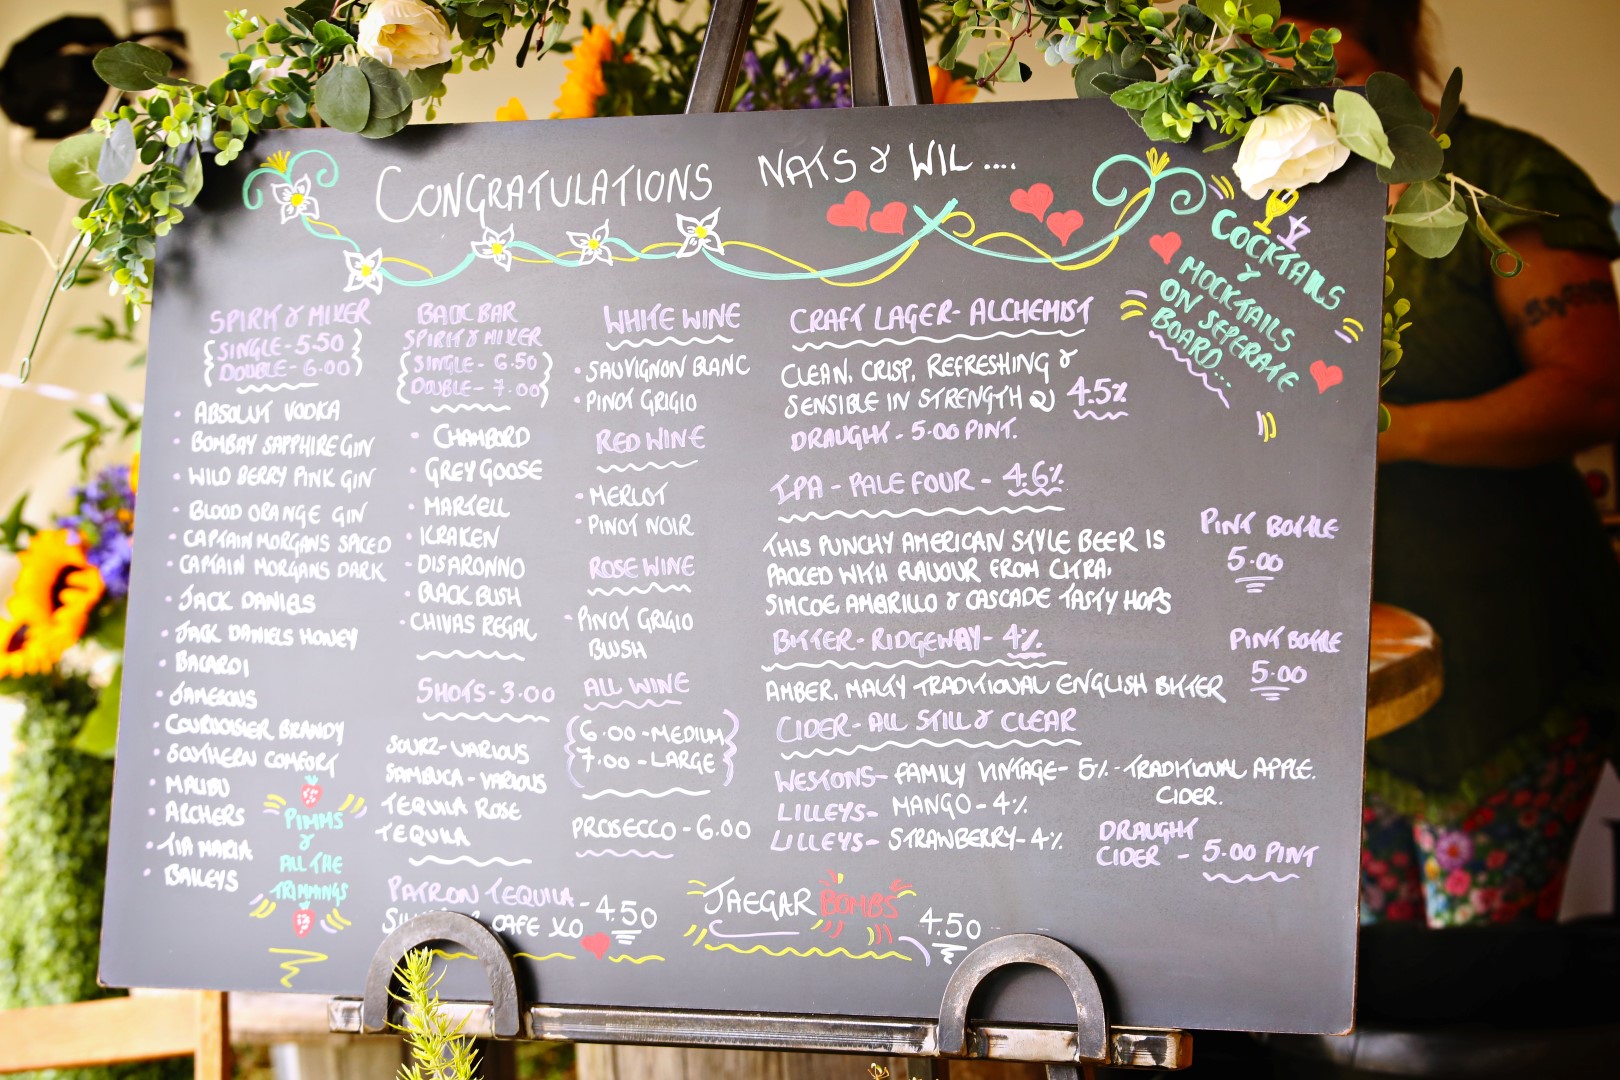 CONGRATULATIONS NATS & WIL ....
COCKTAILS
&
MOCKTAILS
ON SEPERATE
BOARD...
SPIRIT & MIXER
SINGLE - 5.50
DOUBLE - 6.00
• ABSOLUT VODKA
• BOMBAY SAPPHIRE GIN
• WILD BERRY PINK GIN
• BLOOD ORANGE GIN
• CAPTAIN MORGANS SPICED
• CAPTAIN MORGANS DARK
• JACK DANIELS
• JACK DANIELS HONEY
• BACARDI
• JAMESONS
• COURVOISIER BRANDY
• SOUTHERN COMFORT
• MALIBU
• ARCHERS
• TIA MARIA
• BAILEYS
PIMMS
&
ALL THE
TRIMMINGS
BACK BAR
SPIRIT & MIXER
SINGLE - 6.50
DOUBLE - 7.00
• CHAMBORD
• GREY GOOSE
• MARTELL
• KRAKEN
• DISARONNO
• BLACK BUSH
• CHIVAS REGAL
SHOTS - 3.00
SOURZ - VARIOUS
SAMBUCA - VARIOUS
TEQUILA ROSE
TEQUILA
PATRON TEQUILA - 4.50
CAFE XO
WHITE WINE
• SAUVIGNON BLANC
• PINOT GRIGIO
RED WINE
• MERLOT
• PINOT NOIR
ROSE WINE
• PINOT GRIGIO
BLUSH
ALL WINE
6.00 - MEDIUM
7.00 - LARGE
PROSECCO - 6.00
JAEGAR BOMBS 4.50
CRAFT LAGER - ALCHEMIST
CLEAN, CRISP, REFRESHING &
SENSIBLE IN STRENGTH @ 4.5%
DRAUGHT - 5.00 PINT.
IPA - PALE FOUR - 4.6%
THIS PUNCHY AMERICAN STYLE BEER IS
PACKED WITH FLAVOUR FROM CITRA,
SIMCOE, AMARILLO & CASCADE TASTY HOPS
PINT BOTTLE
5.00
BITTER - RIDGEWAY - 4%
AMBER, MALTY TRADITIONAL ENGLISH BITTER
PINT BOTTLE
5.00
CIDER - ALL STILL & CLEAR
WESTONS - FAMILY VINTAGE - 5% - TRADITIONAL APPLE.
CIDER.
LILLEYS - MANGO - 4%
LILLEYS - STRAWBERRY - 4%
DRAUGHT
CIDER - 5.00 PINT